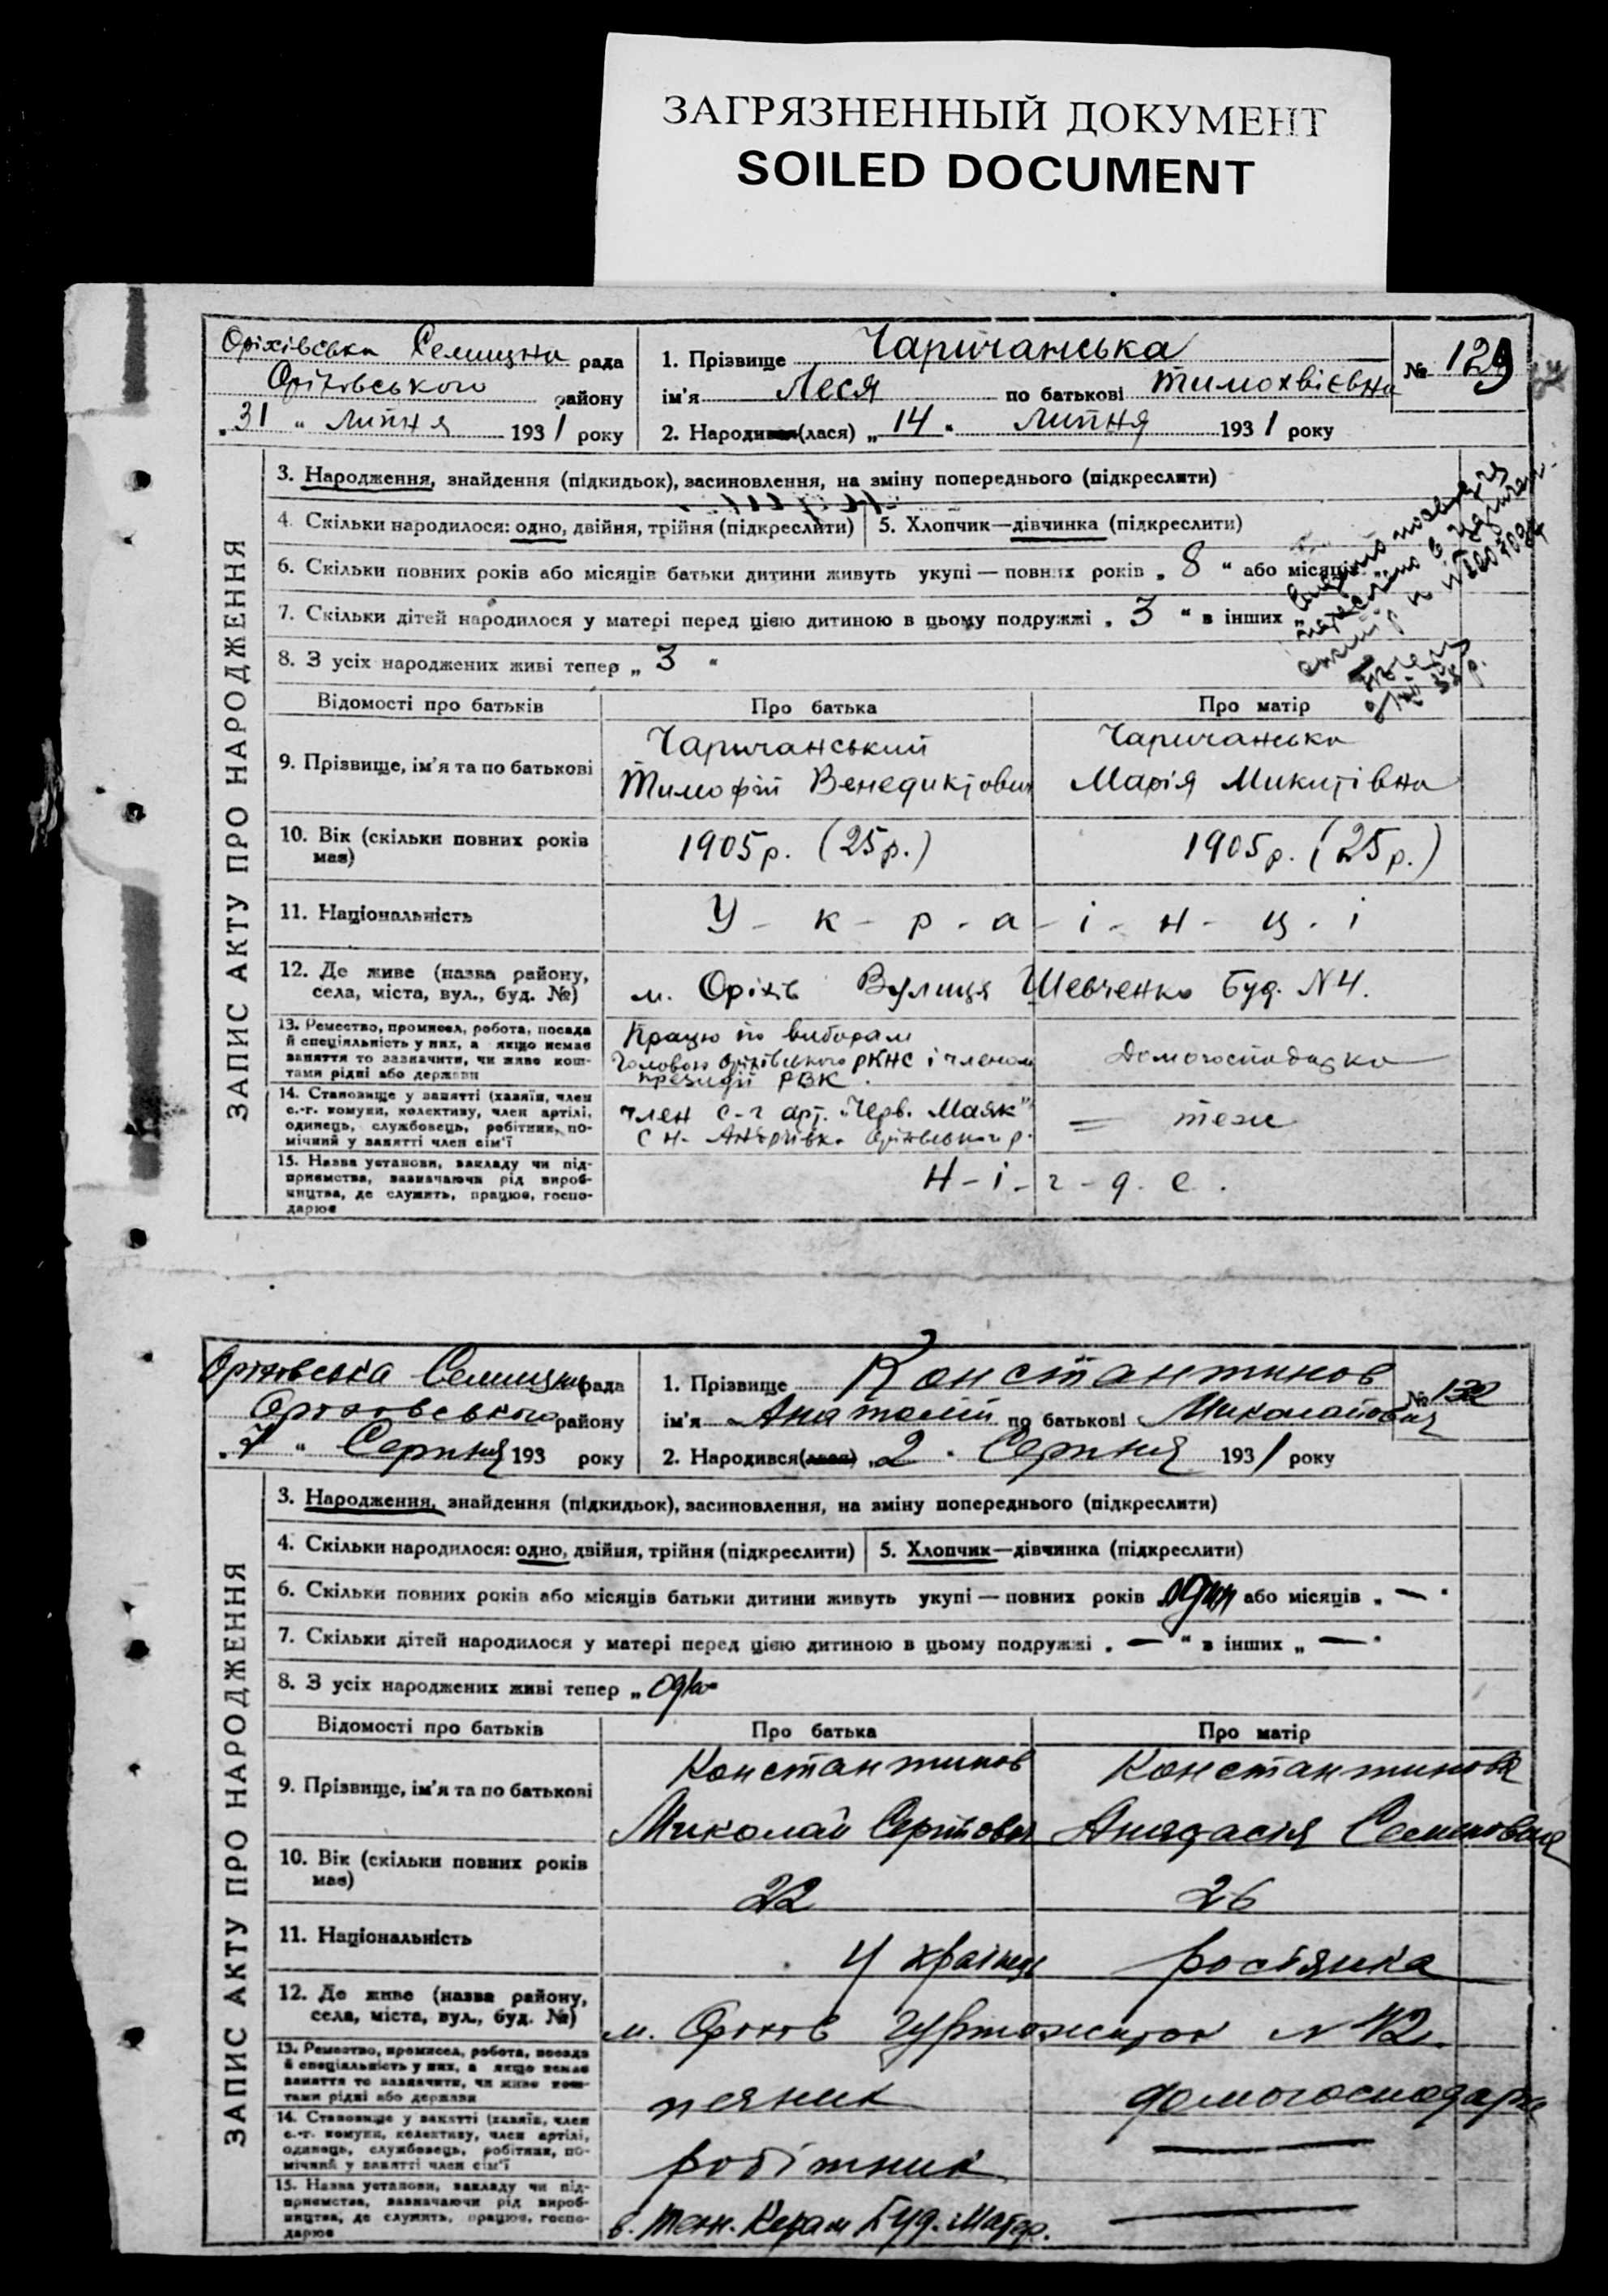 ЗАГРЯЗНЕННЫЙ ДОКУМЕНТ
SOILED DOCUMENT
ЗАПИС АКТУ ПРО НАРОДЖЕННЯ
Оріхівська Селищна рада
Оріхівського району
„31“ Липня 1931 року
1. Прізвище Чаричанська
ім'я Леся по батькові Тимохвієвна
№ 129
2. Народився(лася) „14“ Липня 1931 року
3. Народження, знайдення (підкидьок), засиновлення, на зміну попереднього (підкреслити)
4. Скільки народилося: одно, двійня, трійня (підкреслити) 5. Хлопчик—дівчинка (підкреслити)
6. Скільки повних років або місяців батьки дитини живуть укупі — повних років „8“ або місяців
7. Скільки дітей народилося у матері перед цією дитиною в цьому подружжі „3“ в інших „
8. З усіх народжених живі тепер „3“
Відомості про батьків Про батька Про матір
9. Прізвище, ім'я та по батькові
Чаричанський
Тимофій Венедиктович
Чаричанська
Марія Микитівна
10. Вік (скільки повних років має)
1905р. (25р.) 1905р. (25р.)
11. Національність
У - к - р - а - і - н - ц - і
12. Де живе (назва району, села, міста, вул., буд. №)
м. Оріхів Вулиця Шевченко Буд. N 4.
13. Ремество, промисел, робота, посада
й спеціяльність у них, а якщо немає
заняття то зазначити, чи живе кош-
тами рідні або держави
Працю по виборам
Головою Оріхівського РКНС і членом
президії РВК.
Домогосподарка
14. Становище у занятті (хазяїн, член
с.-г. комуни, колективу, член артілі,
одинець, службовець, робітник, по-
мічний у занятті член сім'ї
член с-г арт. „Черв. Маяк“
Оріхівського р.
= теж
15. Назва установи, закладу чи під-
приємства, зазначаючи рід вироб-
ництва, де служить, працює, госпо-
дарює
Н - і - г - д - е.
ЗАПИС АКТУ ПРО НАРОДЖЕННЯ
Оріхівська Селищна рада
Оріховського району
„7“ Серпня 193 року
1. Прізвище Константинов
ім'я Анатолій по батькові Миколайович
№ 132
2. Народився(лася) „2“ Серпня 1931 року
3. Народження, знайдення (підкидьок), засиновлення, на зміну попереднього (підкреслити)
4. Скільки народилося: одно, двійня, трійня (підкреслити) 5. Хлопчик—дівчинка (підкреслити)
6. Скільки повних років або місяців батьки дитини живуть укупі — повних років один або місяців „—“
7. Скільки дітей народилося у матері перед цією дитиною в цьому подружжі „—“ в інших „—“
8. З усіх народжених живі тепер „одно“
Відомості про батьків Про батька Про матір
9. Прізвище, ім'я та по батькові
Константинов
Миколай Сергійович
Константинова
Анастасія Семеновна
10. Вік (скільки повних років має)
22 26
11. Національність
Українець росіянка
12. Де живе (назва району, села, міста, вул., буд. №)
м. Оріхов Гуртожиток N 42
13. Ремество, промисел, робота, посада
й спеціяльність у них, а якщо немає
заняття то зазначити, чи живе кош-
тами рідні або держави
домогосподарка
14. Становище у занятті (хазяїн, член
с.-г. комуни, колективу, член артілі,
одинець, службовець, робітник, по-
мічний у занятті член сім'ї
робітник —
15. Назва установи, закладу чи під-
приємства, зазначаючи рід вироб-
ництва, де служить, працює, госпо-
дарює
в. Техн. Керам Буд. Матер. —